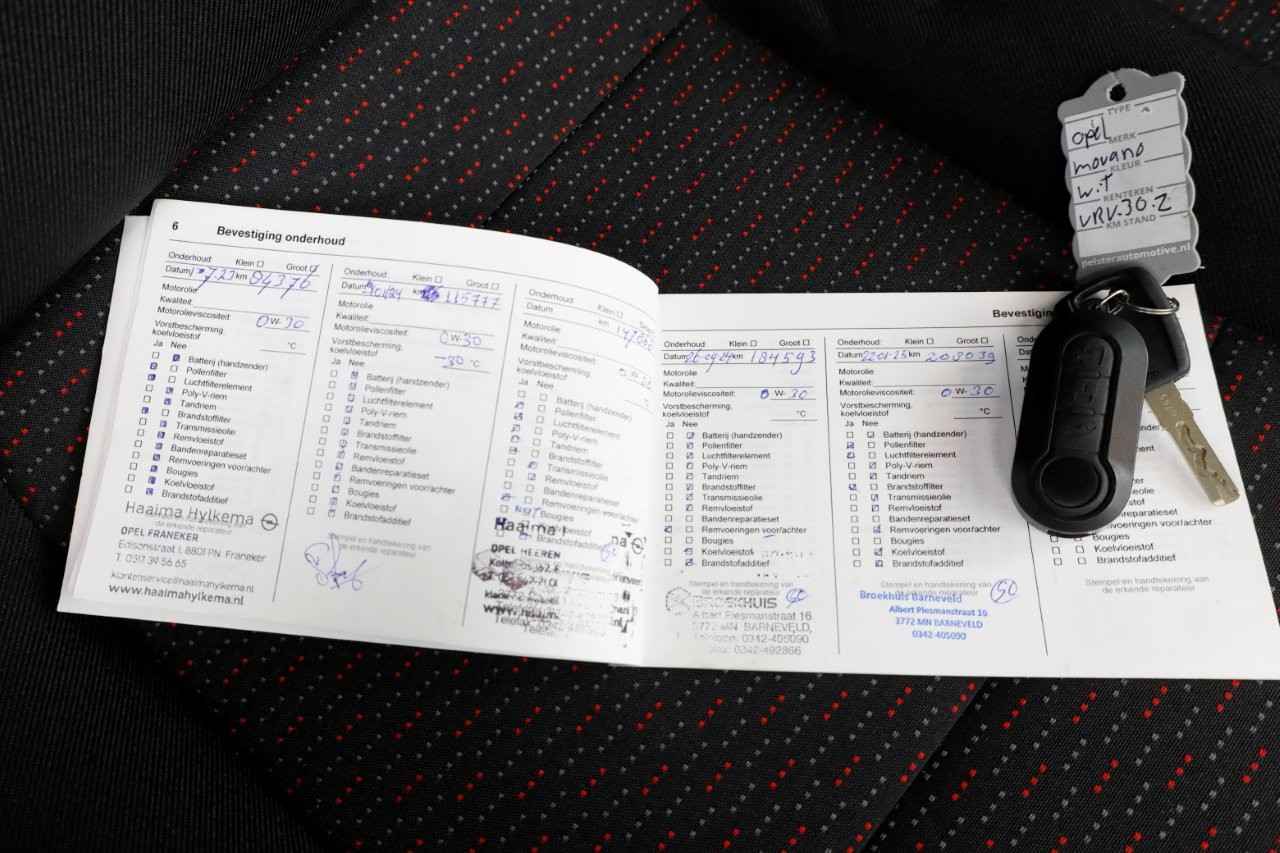 6 Bevestiging onderhoud
Onderhoud: Klein Groot
Datum km 94376
Motorolie
Kwaliteit:
Motorolieviscositeit: 0 W- 30
Vorstbescherming, koelvloeistof °C
Ja Nee
Batterij (handzender)
Pollenfilter
Luchtfilterelement
Poly-V-riem
Tandriem
Brandstoffilter
Transmissieolie
Remvloeistof
Bandenreparatieset
Remvoeringen voor/achter
Bougies
Koelvloeistof
Brandstofadditief
Haaima Hylkema
de erkende reparateur
OPEL FRANEKER
Edisonstraat 1, 8801 PN Franeker
T. 0517 39 56 65
klantenservice@haaimahylkema.nl
www.haaimahylkema.nl
Onderhoud: Klein Groot
Datum km 115777
Motorolie
Kwaliteit:
Motorolieviscositeit: 0 W- 30
Vorstbescherming, koelvloeistof -30 °C
Ja Nee
Batterij (handzender)
Pollenfilter
Luchtfilterelement
Poly-V-riem
Tandriem
Brandstoffilter
Transmissieolie
Remvloeistof
Bandenreparatieset
Remvoeringen voor/achter
Bougies
Koelvloeistof
Brandstofadditief
Stempel en handtekening van
de erkende reparateur
Onderhoud: Klein Groot
Datum km
Motorolie
Kwaliteit:
Motorolieviscositeit:
Vorstbescherming, koelvloeistof
Ja Nee
Batterij (handzender)
Pollenfilter
Luchtfilterelement
Poly-V-riem
Tandriem
Brandstoffilter
Transmissieolie
Remvloeistof
Bandenreparatieset
Remvoeringen voor/achter
Bougies
Koelvloeistof
Brandstofadditief
Haaima
OPEL HEEREN
Bevestiging
Onderhoud: Klein Groot
Datum 26-09-24 km 184593
Motorolie
Kwaliteit:
Motorolieviscositeit: 0 W- 30
Vorstbescherming, koelvloeistof °C
Ja Nee
Batterij (handzender)
Pollenfilter
Luchtfilterelement
Poly-V-riem
Tandriem
Brandstoffilter
Transmissieolie
Remvloeistof
Bandenreparatieset
Remvoeringen voor/achter
Bougies
Koelvloeistof
Brandstofadditief
Stempel en handtekening van
de erkende reparateur
BROEKHUIS
Albert Plesmanstraat 16
3772 MN BARNEVELD,
Telefoon: 0342-405090
Fax: 0342-492866
Onderhoud: Klein Groot
Datum 22-01-25 km 208039
Motorolie
Kwaliteit:
Motorolieviscositeit: 0 W- 30
Vorstbescherming, koelvloeistof °C
Ja Nee
Batterij (handzender)
Pollenfilter
Luchtfilterelement
Poly-V-riem
Tandriem
Brandstoffilter
Transmissieolie
Remvloeistof
Bandenreparatieset
Remvoeringen voor/achter
Bougies
Koelvloeistof
Brandstofadditief
Stempel en handtekening van
de erkende reparateur
Broekhuis Barneveld
Albert Plesmanstraat 16
3772 MN BARNEVELD
0342-405090
Remvoeringen voor/achter
Bougies
Koelvloeistof
Brandstofadditief
Stempel en handtekening van
de erkende reparateur
TYPE
opel
MERK
movano
KLEUR
wit
KENTEKEN
VRV-30-Z
KM STAND
pelsterautomotive.nl